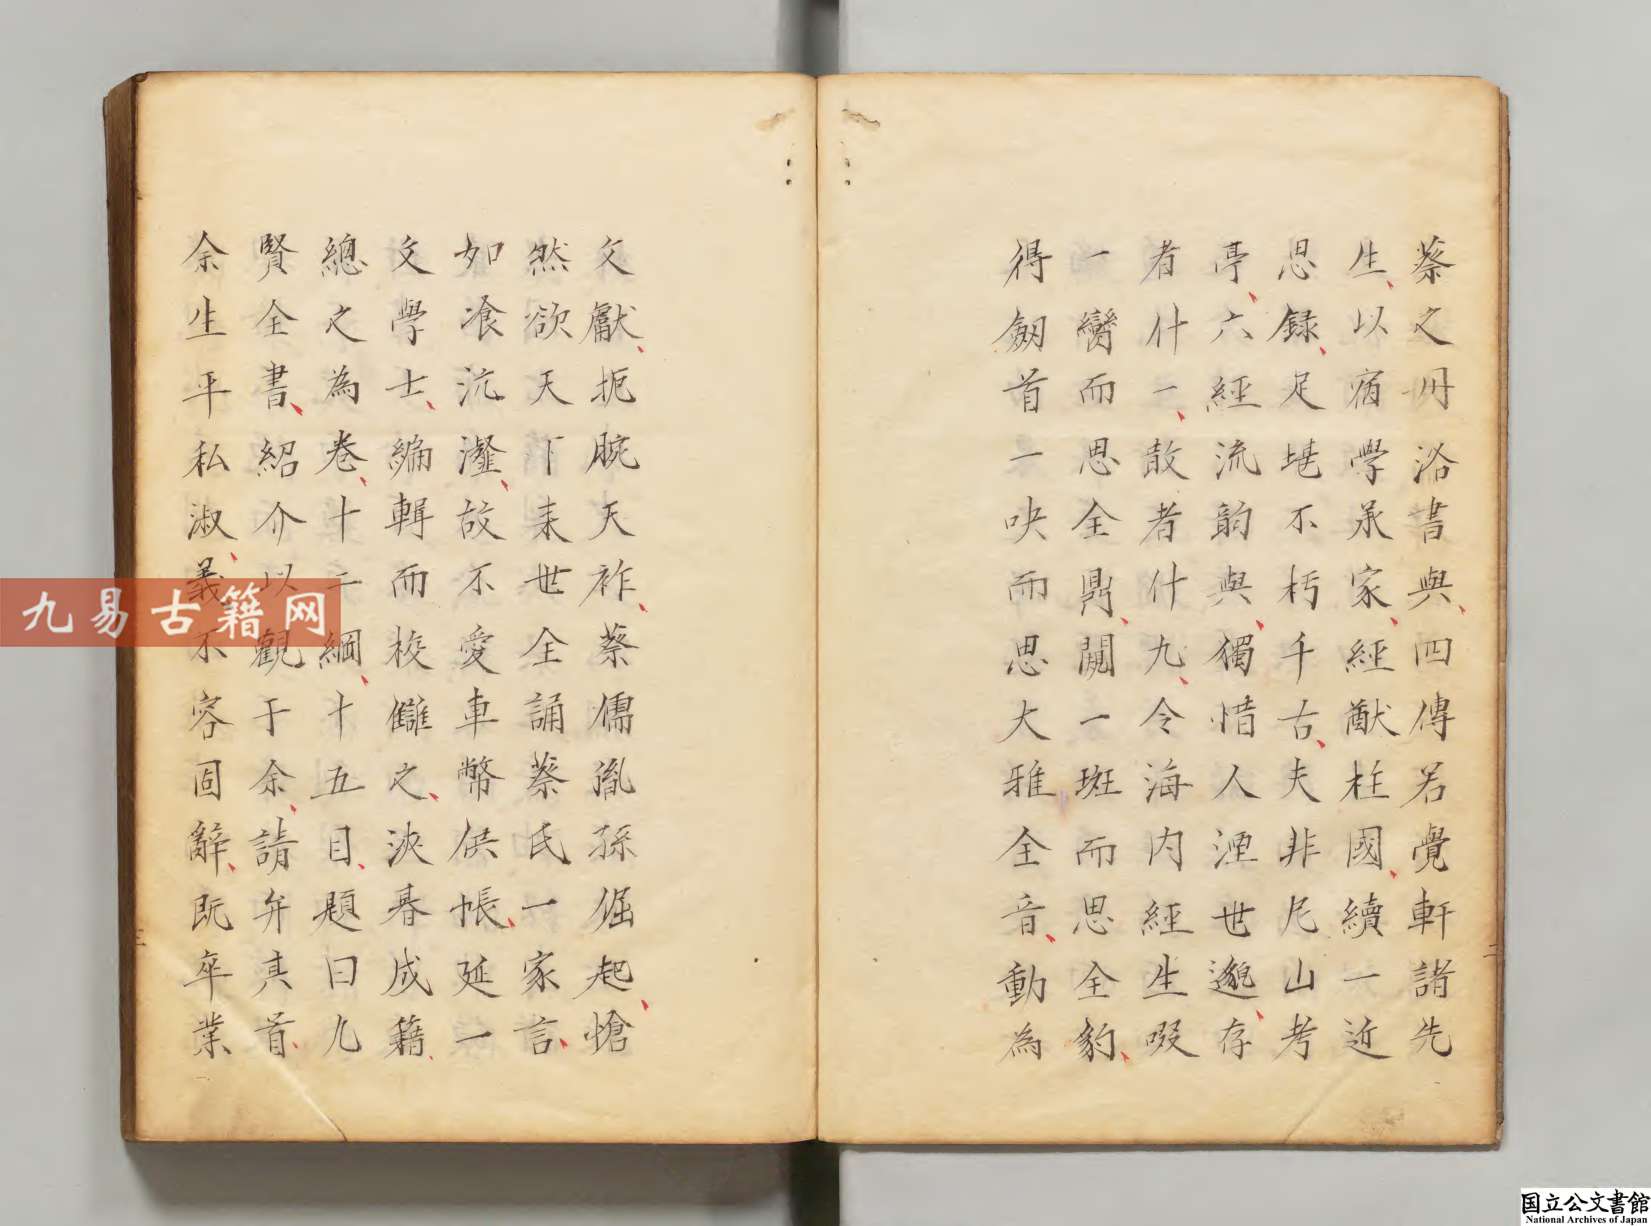 蔡之冊洛書與四傳若覺軒諸先
生以宿學承家經猷柱國續一近
思錄足堪不朽千古夫非尼山考
亭六經流韵與獨惜人湮世邈存
者什一散者什九令海內經生啜
一臠而思全鼎闚一斑而思全豹
得劒首一吷而思大雅全音動為
文獻扼腕天祚蔡儒胤孫倔起愴
然欲天下來世全誦蔡氏一家言
如飡沆瀣故不愛車幣供帳延一
文學士編輯而校讎之浹朞成籍
總之為卷十二綱十五目題曰九
賢全書紹介以觀于余請弁其首
余生平私淑義不容固辭既卒業
二
三
九易古籍网
国立公文書館
National Archives of Japan